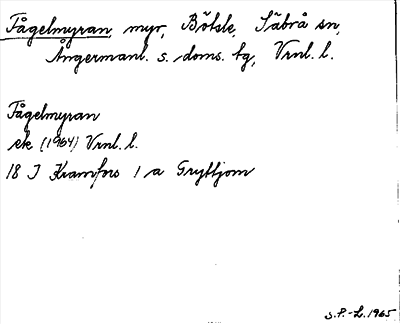 Fågelmyran, myr, Bölsle, Säbrå sn,
Ångermanl. s. doms. tg, Vrnl. l.
Fågelmyran
ek (1964) Vrnl. l.
18 I Kramfors 1 a Gryttjom
S.P.-L. 1965